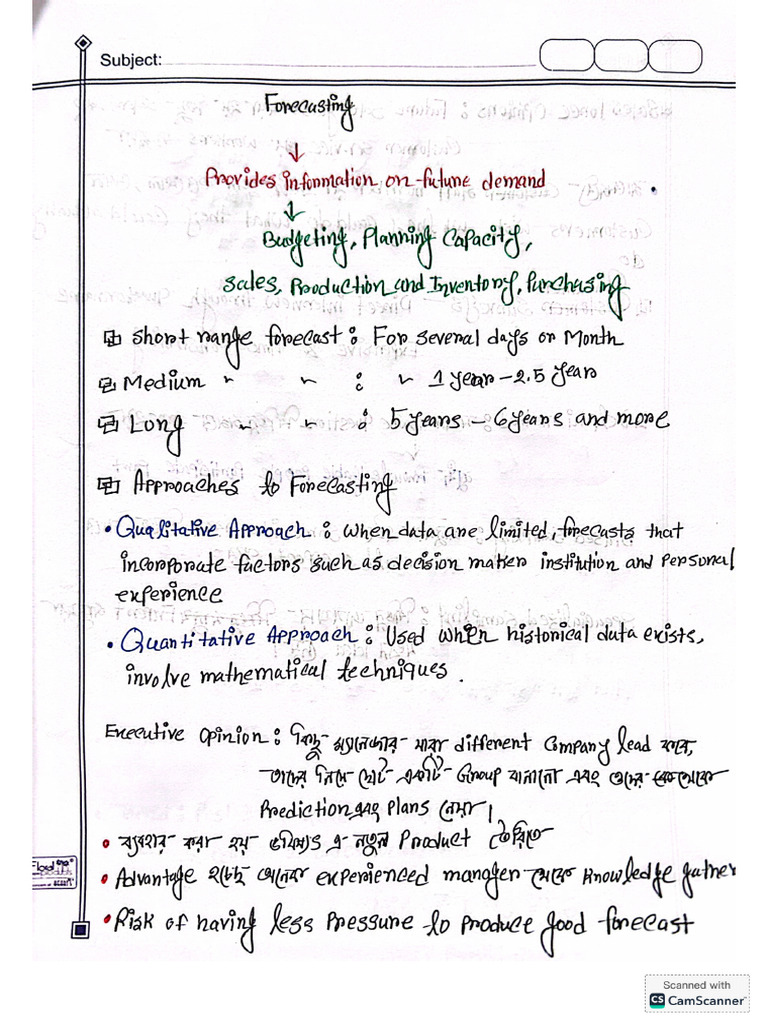 Subject:
Forecasting
↓
Provides information on future demand
↓
Budgeting, Planning Capacity,
Sales, Production and Inventory, Purchasing
Short range forecast : For several days or Month
Medium " " : " 1 year – 2.5 year
Long " " : 5 years – 6 years and more
Approaches to Forecasting
• Qualitative Approach : When data are limited, forecasts that
incorporate factors such as decision maker institution and personal
experience
• Quantitative Approach : Used when historical data exists,
involve mathematical techniques.
Executive opinion : কিছু ম্যানেজার যারা different company lead করে,
তাদের নিয়ে ছোট একটি Group বানানো এবং ওদের থেকে
Prediction এবং Plans নেয়া।
• ব্যবহার করা হয় ভবিষ্যত এ নতুন Product তৈরিতে
• Advantage হচ্ছে অনেক experienced manager থেকে knowledge gather
• Risk of having less pressure to produce good forecast
Scanned with
CS CamScanner